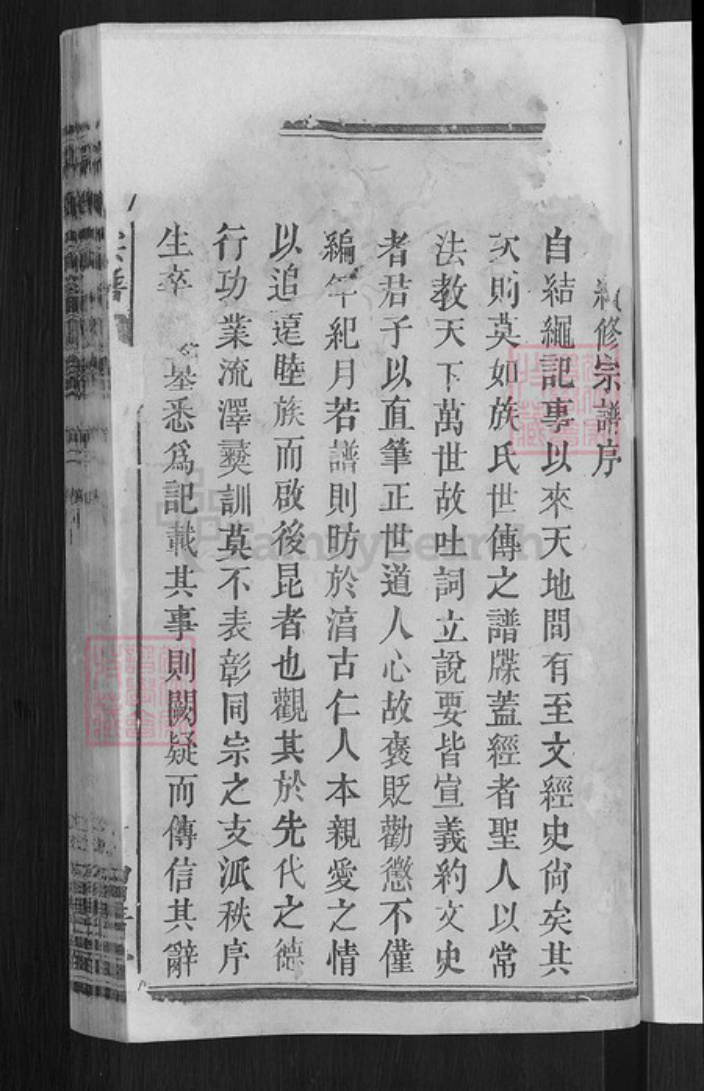 續修宗譜序
自結繩記事以來天地間有至文經史尙矣其
次則莫如族氏世傳之譜牒蓋經者聖人以常
法教天下萬世故吐詞立說要皆宣義約文史
者君子以直筆正世道人心故褒貶勸懲不僅
編年紀月若譜則昉於
古仁人本親愛之情
以追遠睦族而啟後昆者也觀其於先代之德
行功業流澤彝訓莫不表彰同宗之支派秩序
生卒
墓悉爲記載其事則闕疑而傳信其辭
宗譜
FamilySearch